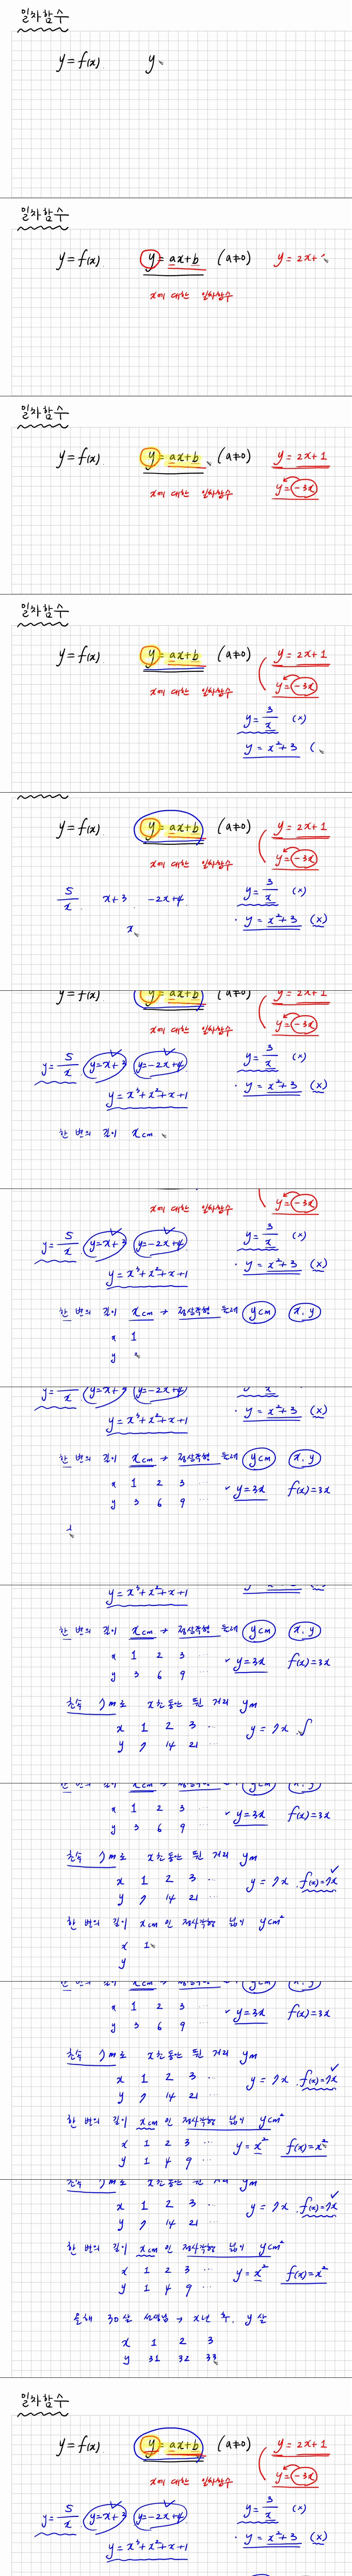 일차함수
y = f(x)   y
일차함수
y = f(x)   y = ax+b   (a≠0)   y = 2x+
x에 대한 일차함수
일차함수
y = f(x)   y = ax+b   (a≠0)   y = 2x+1
x에 대한 일차함수   y = -3x
일차함수
y = f(x)   y = ax+b   (a≠0)   y = 2x+1
x에 대한 일차함수   y = -3x
y = 3/x (×)
y = x²+3 (
y = f(x)   y = ax+b   (a≠0)   y = 2x+1
x에 대한 일차함수   y = -3x
5/x   x+3   -2x+4   y = 3/x (×)
x   · y = x²+3 (×)
y = f(x)   y = ax+b   (a≠0)   y = 2x+1
x에 대한 일차함수   y = -3x
y = 5/x   y=x+3   y=-2x+4   y = 3/x (×)
y = x³+x²+x+1   · y = x²+3 (×)
한 변의 길이 xcm
x에 대한 일차함수   y = -3x
y = 5/x   y=x+3   y=-2x+4   y = 3/x (×)
y = x³+x²+x+1   · y = x²+3 (×)
한 변의 길이 xcm → 정삼각형 둘레 ycm   x, y
x 1
y
y = x   y=x+3   y=-2x+4   x
y = x³+x²+x+1   · y = x²+3 (×)
한 변의 길이 xcm → 정삼각형 둘레 ycm   x, y
x 1 2 3 ...   y = 3x   f(x) = 3x
y 3 6 9 ...
y = x³+x²+x+1
한 변의 길이 xcm → 정삼각형 둘레 ycm   x, y
x 1 2 3 ...   y = 3x   f(x) = 3x
y 3 6 9 ...
초속 7m로 x초 동안 뛴 거리 ym
x 1 2 3 ...   y = 7x   f
y 7 14 21 ...
한 변의 길이 xcm → 정삼각형 둘레 ycm   x, y
x 1 2 3 ...   y = 3x   f(x) = 3x
y 3 6 9 ...
초속 7m로 x초 동안 뛴 거리 ym
x 1 2 3 ...   y = 7x   f(x) = 7x
y 7 14 21 ...
한 변의 길이 xcm인 정사각형 넓이 ycm²
x 1
y
한 변의 길이 xcm → 정삼각형 둘레 ycm   x, y
x 1 2 3 ...   y = 3x   f(x) = 3x
y 3 6 9 ...
초속 7m로 x초 동안 뛴 거리 ym
x 1 2 3 ...   y = 7x   f(x) = 7x
y 7 14 21 ...
한 변의 길이 xcm인 정사각형 넓이 ycm²
x 1 2 3 ...   y = x²   f(x) = x²
y 1 4 9 ...
초속 7m로 x초 동안 뛴 거리 ym
x 1 2 3 ...   y = 7x   f(x) = 7x
y 7 14 21 ...
한 변의 길이 xcm인 정사각형 넓이 ycm²
x 1 2 3 ...   y = x²   f(x) = x²
y 1 4 9 ...
올해 30살 선생님 → x년 후, y살
x 1 2 3
y 31 32 33
일차함수
y = f(x)   y = ax+b   (a≠0)   y = 2x+1
x에 대한 일차함수   y = -3x
y = 5/x   y=x+3   y=-2x+4   y = 3/x (×)
y = x³+x²+x+1   · y = x²+3 (×)